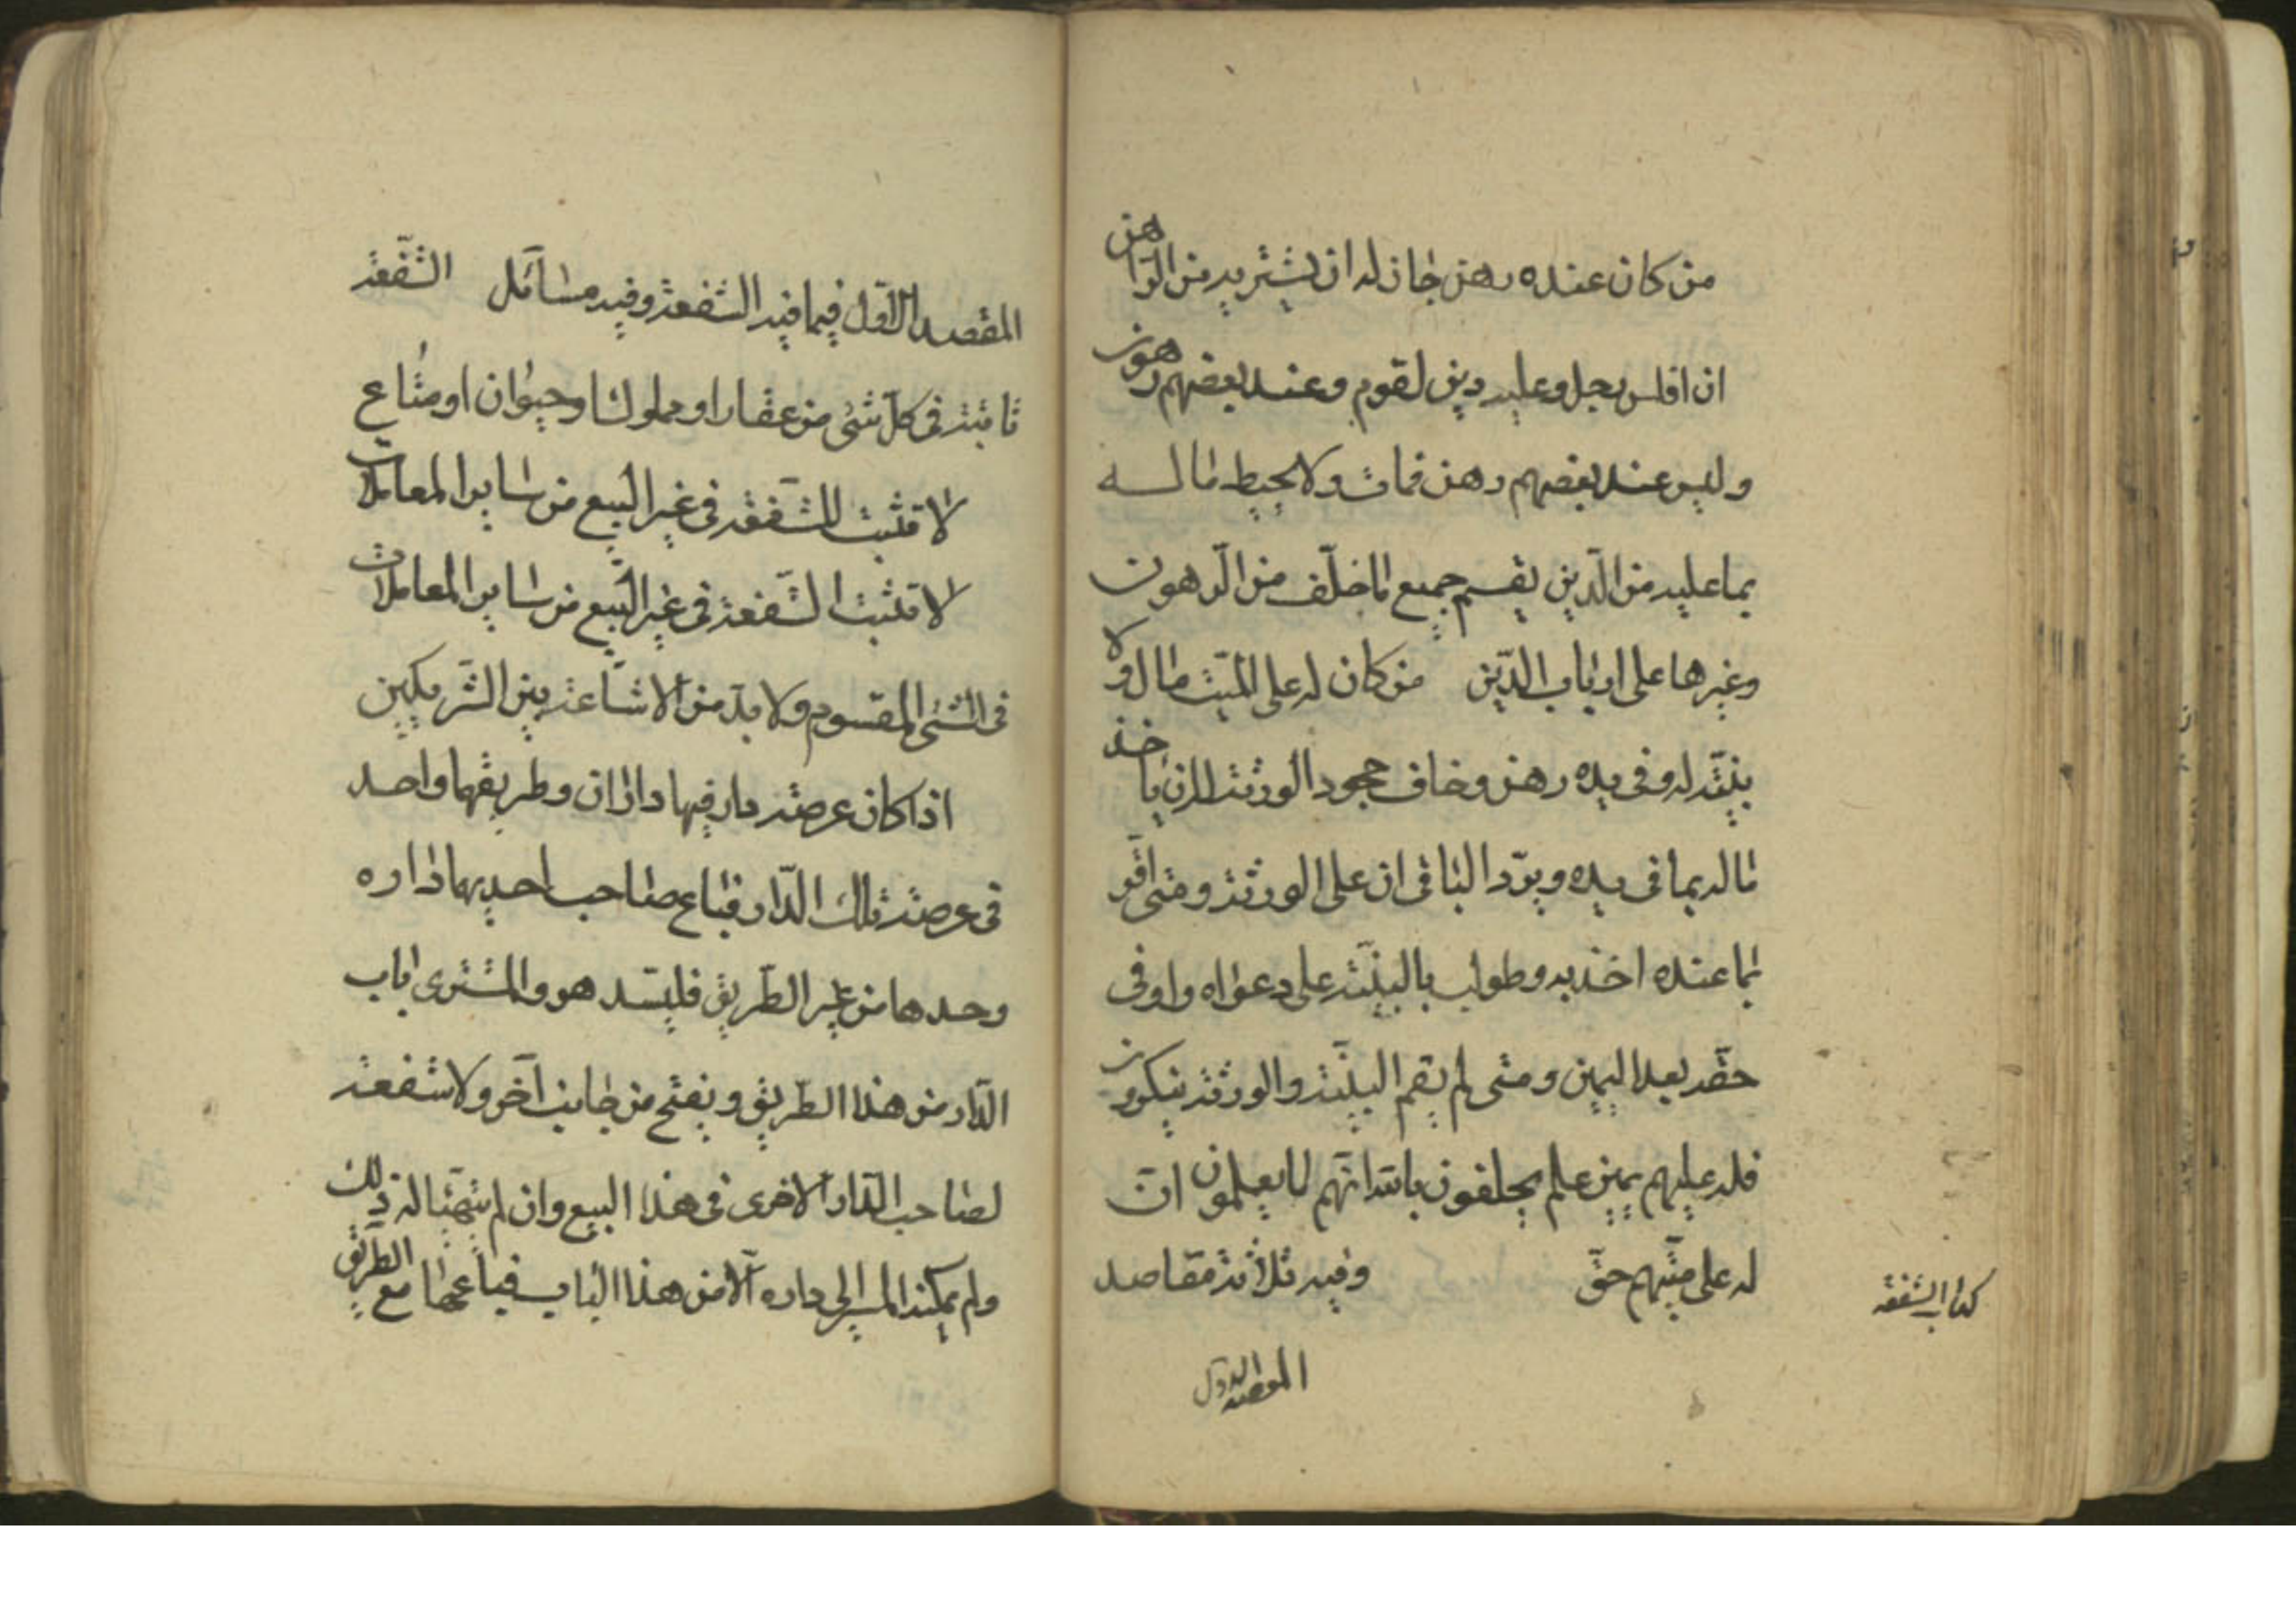 من كان عنده رهن جاز له ان يشتريه من الراهن
ان افلس رجل وعليه دين لقوم وعند بعضهم رهون
وليس عند بعضهم رهن فمات ولا يحيط ماله
بما عليه من الدّين يقسم جميع ما خلّف من الرّهون
وغيرها على ارباب الدّين من كان له على الميّت مال ولا
بيّنة له وفى يده رهن وخاف جحود الورثة ان يأخذ
ماله بما فى يده ويردّ الباقى ان على الورثة ومتى اقّر
بما عنده اخذ به وطولب بالبيّنة على دعواه واوفى
حقّه بعد اليمين ومتى لم يقم البيّنة والورثة ينكرون
فله عليهم يمين علم يحلفون بالله انّهم لا يعلمون انّ
له على ميّتهم حقّ وفيه ثلاثة مقاصد
كتاب الشفعة
المقصد الاول
المقصد الاوّل فيما فيه الشفعة وفيه مسائل الشّفعة
ثابتة فى كلّ شئ من عقار او مملوك او حيوان او متاع
لا تثبت الشّفعة فى غير البيع من ساير المعاملات
لا تثبت الشّفعة فى غير البيع من ساير المعاملات
فى الشئ المقسوم ولا بدّ من الاشاعة بين الشّريكين
اذا كان عرصة دار فيها داران وطريقهما واحد
فى عرصة تلك الدّار فباع صاحب احديهما داره
وحدها من غير الطّريق فليسّد هو والمشترى باب
الدّار من هذا الطّريق ويفتح من جانب آخر ولا شفعة
لصاحب الدّار الاخرى فى هذا البيع وان لم يتهيّأ له ذلك
ولم يمكنه المسير الى داره الّا من هذا الباب فباعها مع الطّريق